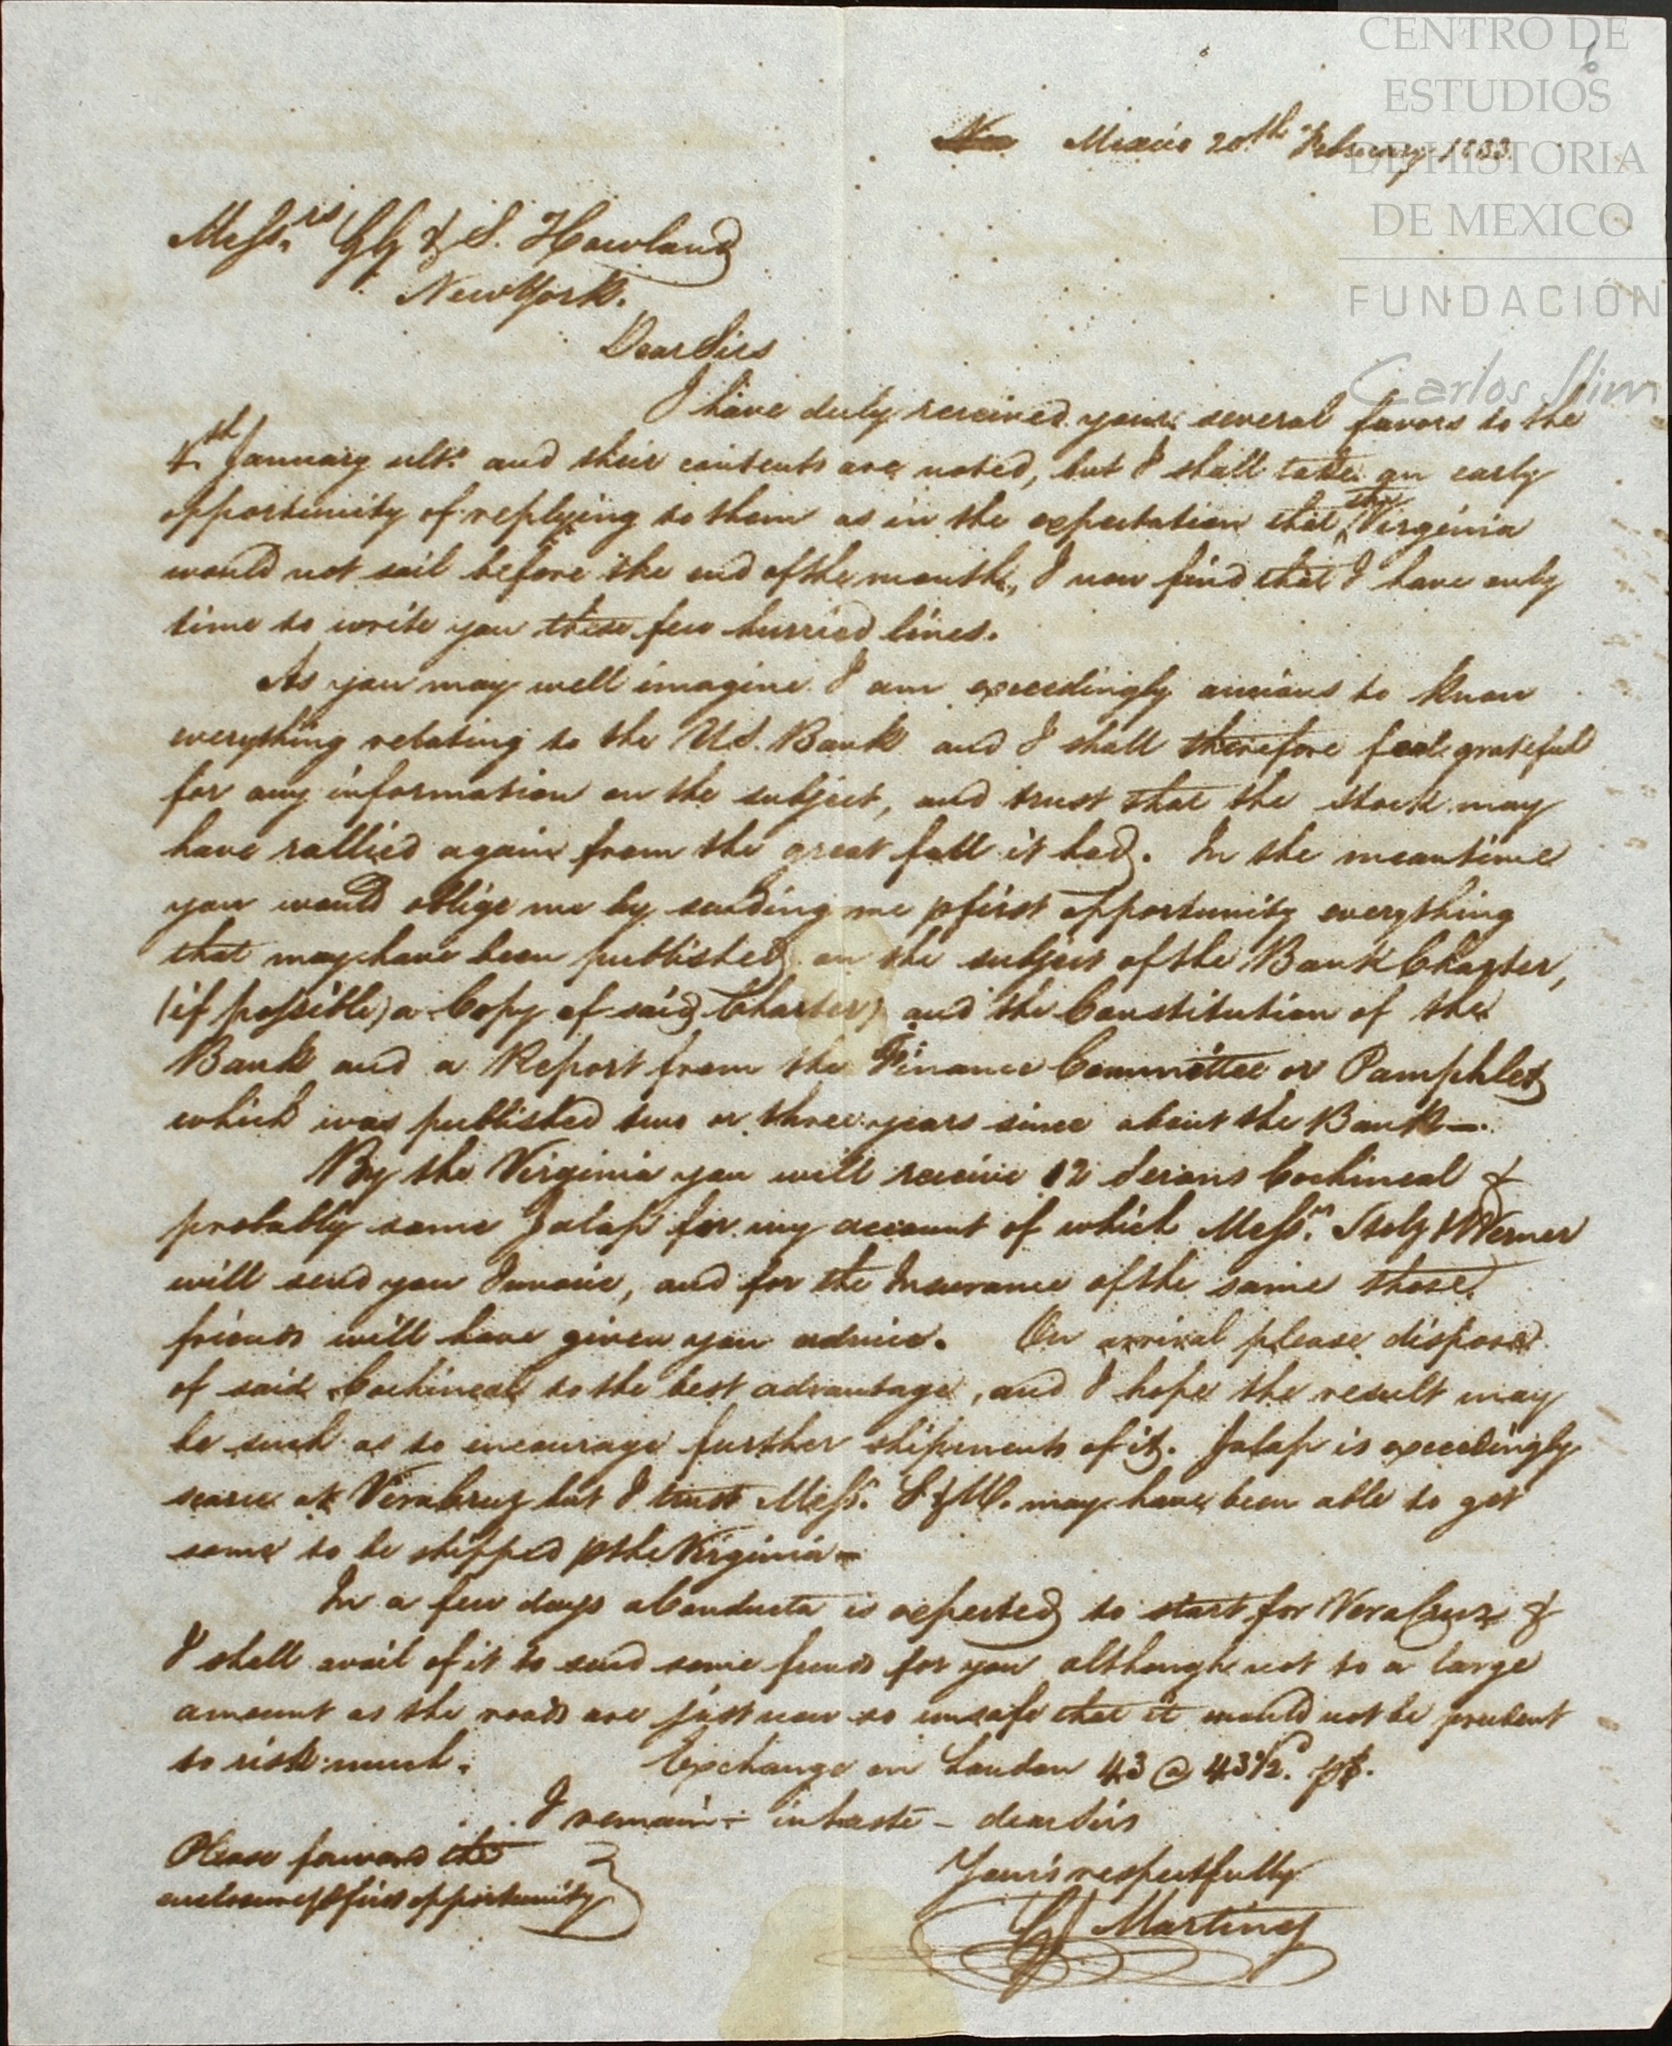 CENTRO DE
ESTUDIOS
DE HISTORIA
DE MEXICO
FUNDACIÓN
Carlos Slim
6
Mexico 20th February 1833.
Messrs. GG & S. Howland
New York.
Dear Sirs
I have duly received your several favors to the
January ulto. and their contents are noted, but I shall take an early
opportunity of replying to them as in the expectation that the Virginia
would not sail before the end of the month, I now find that I have only
time to write you these few hurried lines.
As you may well imagine I am exceedingly anxious to know
everything relating to the U.S. Bank and I shall therefore feel grateful
for any information on the subject, and trust that the stock may
have rallied again from the great fall it had. In the meantime
you would oblige me by sending me p first opportunity everything
that may have been published on the subject of the Bank Charter,
(if possible) a Copy of said Charter, and the Constitution of the
Bank and a Report from the Finance Committee or Pamphlet
which was published two or three years since about the Bank—.
By the Virginia you will receive 12 Serons Cochineal &
probably some Jalap for my account of which Messrs. Stolz & Werner
will send you Invoice, and for the Insurance of the same those
friends will have given you advice. On arrival please dispose
of said Cochineal to the best advantage, and I hope the result may
be such as to encourage further shipments of it. Jalap is exceedingly
scarce at Vera Cruz but I trust Messs. S & W. may have been able to get
some to be shipped p the Virginia—
In a few days a Conducta is expected to start for Vera Cruz &
I shall avail of it to send some funds for you although not to a large
amount as the roads are just now so unsafe that it would not be prudent
to risk much. Exchange on London 43 @ 43½d. p$.
I remain - in haste - dear Sirs
Please forward the
enclosure p first opportunity
Yours respectfully
Martinez